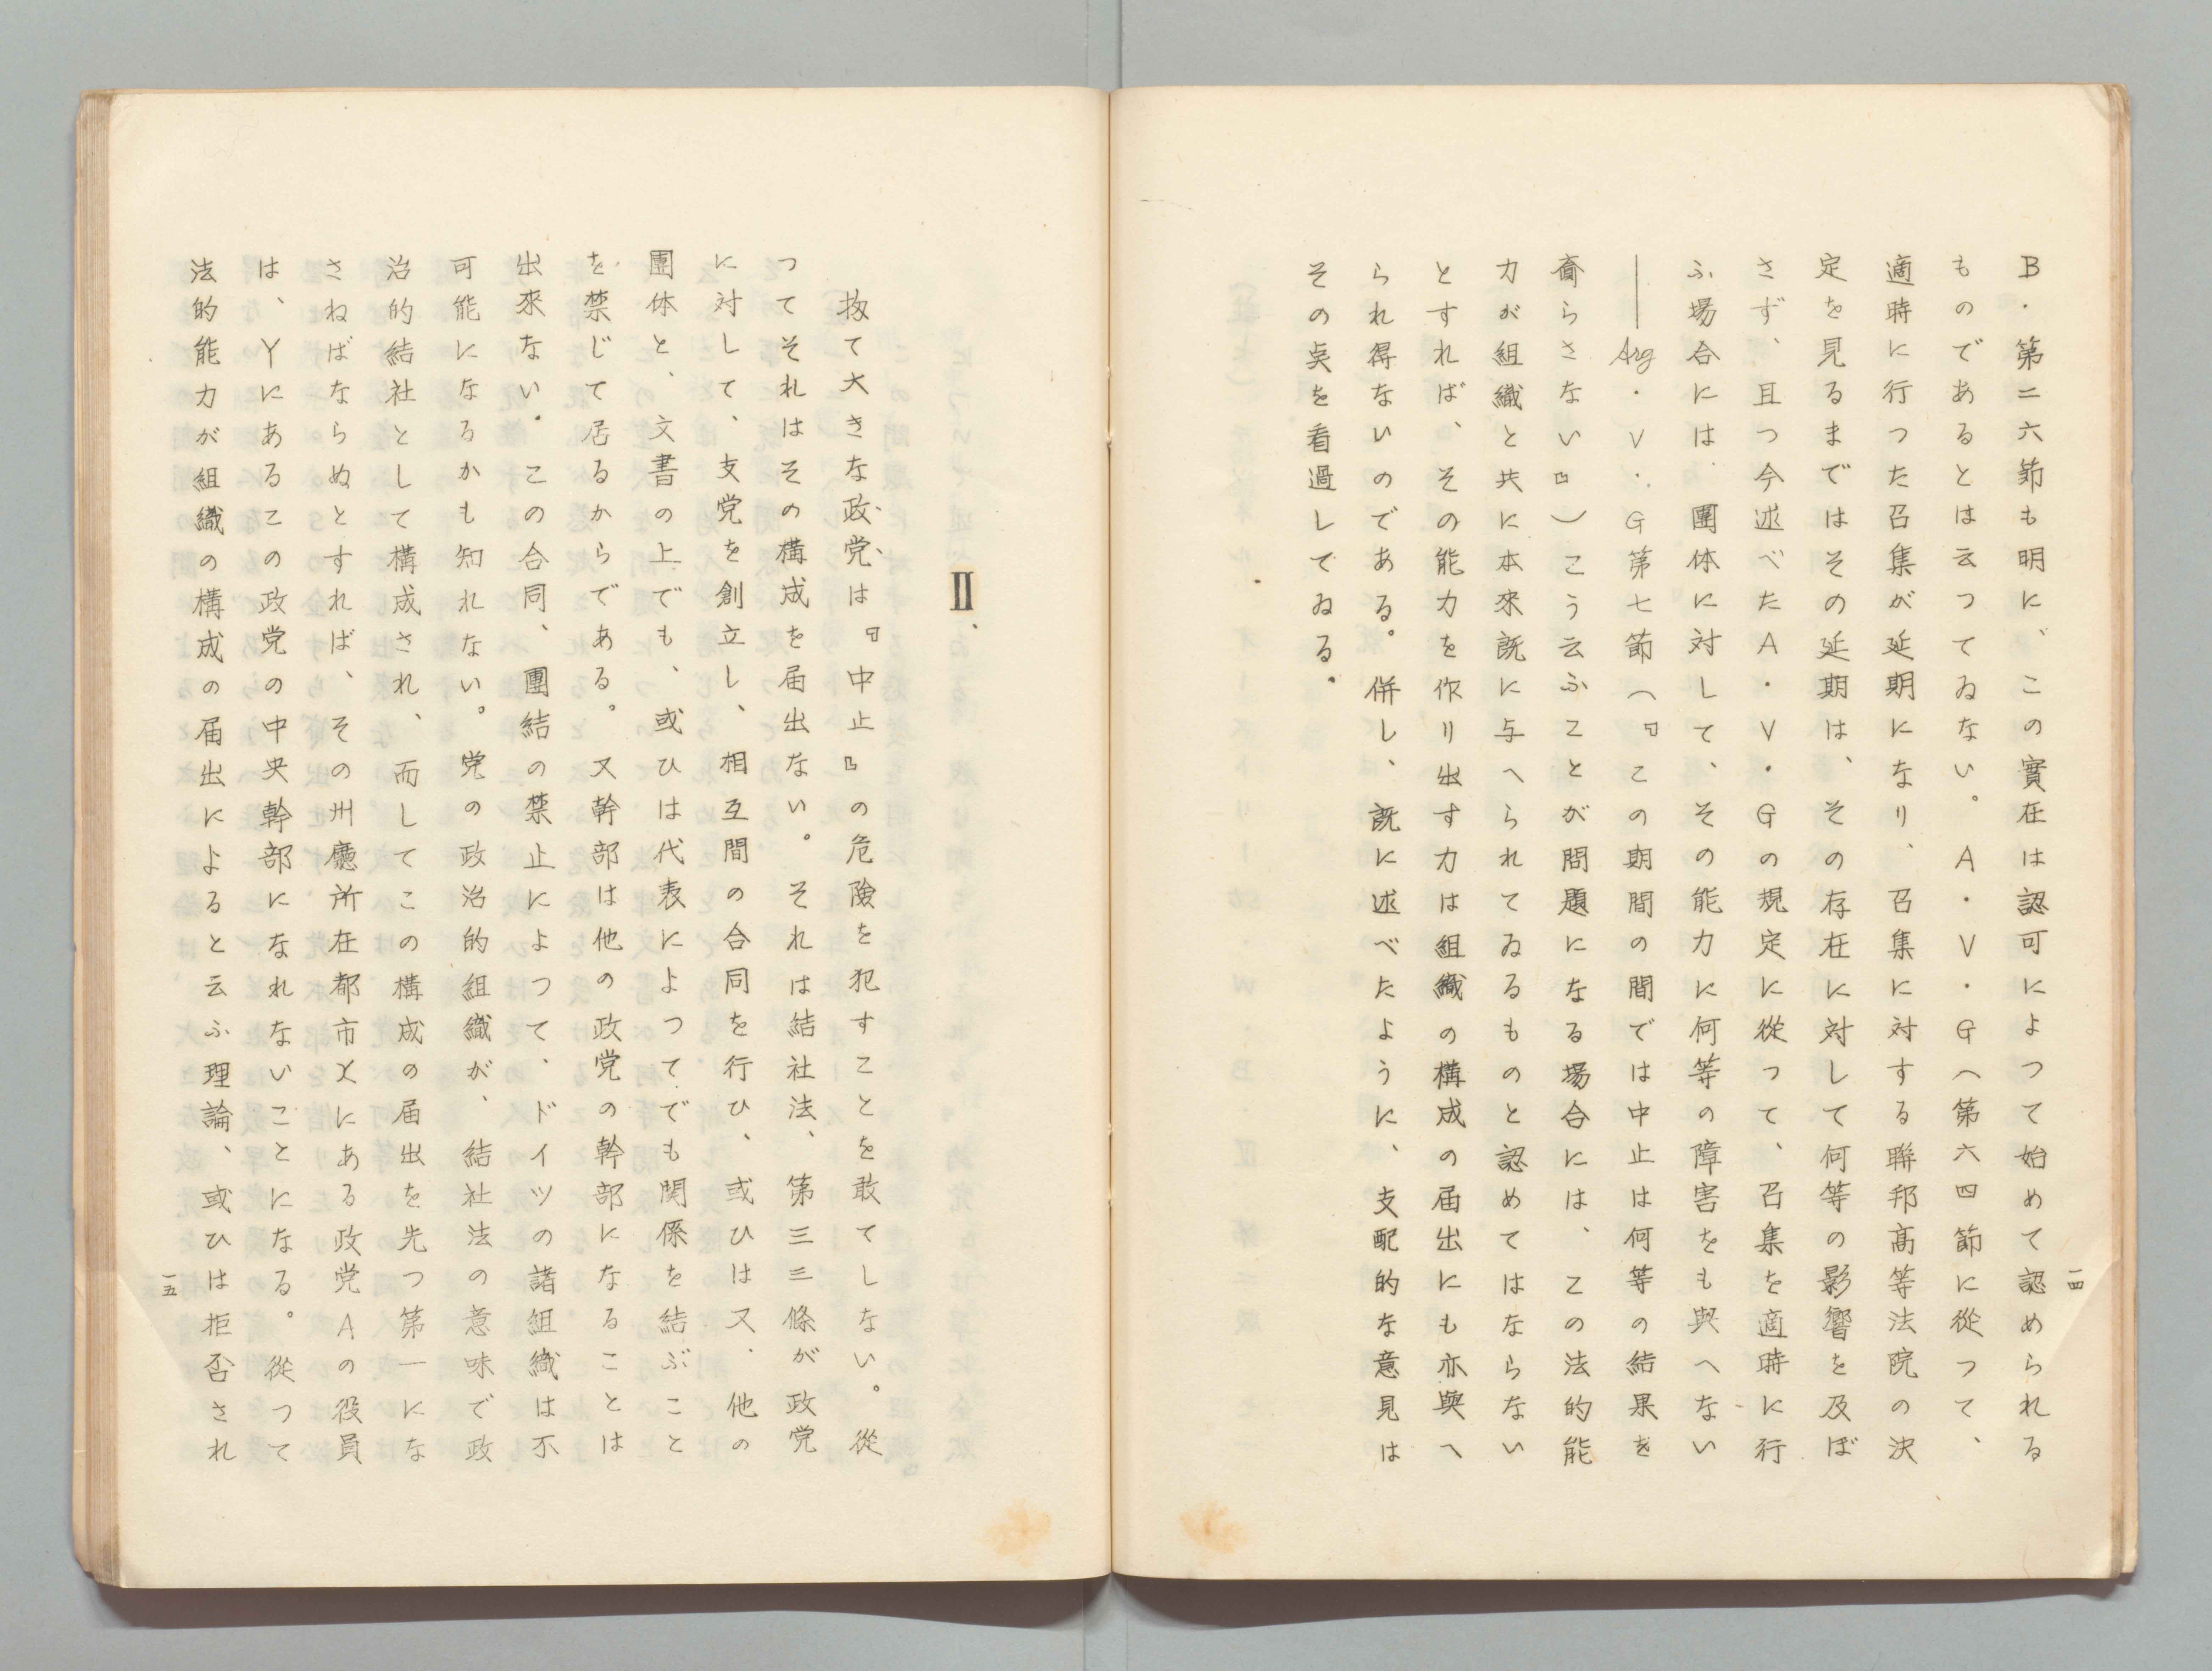 一四
B・第二六節も明に、この實在は認可によつて始めて認められる
ものであるとは云つてゐない。A・V・G（第六四節に從つて、
適時に行つた召集が延期になり、召集に対する聯邦高等法院の決
定を見るまではその延期は、その存在に対して何等の影響を及ぼ
さず、且つ今述べたA・V・Gの規定に從つて、召集を適時に行
ふ場合には、團体に対して、その能力に何等の障害をも與へない
——Arg・V・G第七節（『この期間の間では中止は何等の結果を
齎らさない』）こう云ふことが問題になる場合には、この法的能
力が組織と共に本來既に与へられてゐるものと認めてはならない
とすれば、その能力を作り出す力は組織の構成の届出にも亦與へ
られ得ないのである。併し、既に述べたように、支配的な意見は
その点を看過してゐる。
Ⅱ、
扨て大きな政党は『中止』の危険を犯すことを敢てしない。從
つてそれはその構成を届出ない。それは結社法、第三三條が政党
に対して、支党を創立し、相互間の合同を行ひ、或ひは又、他の
團体と、文書の上でも、或ひは代表によつてでも関係を結ぶこと
を禁じて居るからである。又幹部は他の政党の幹部になることは
出來ない。この合同、團結の禁止によつて、ドイツの諸組織は不
可能になるかも知れない。党の政治的組織が、結社法の意味で政
治的結社として構成され、而してこの構成の届出を先つ第一にな
さねばならぬとすれば、その州廳所在都市Xにある政党Aの役員
は、Yにあるこの政党の中央幹部になれないことになる。從つて
法的能力が組織の構成の届出によると云ふ理論、或ひは拒否され
一五